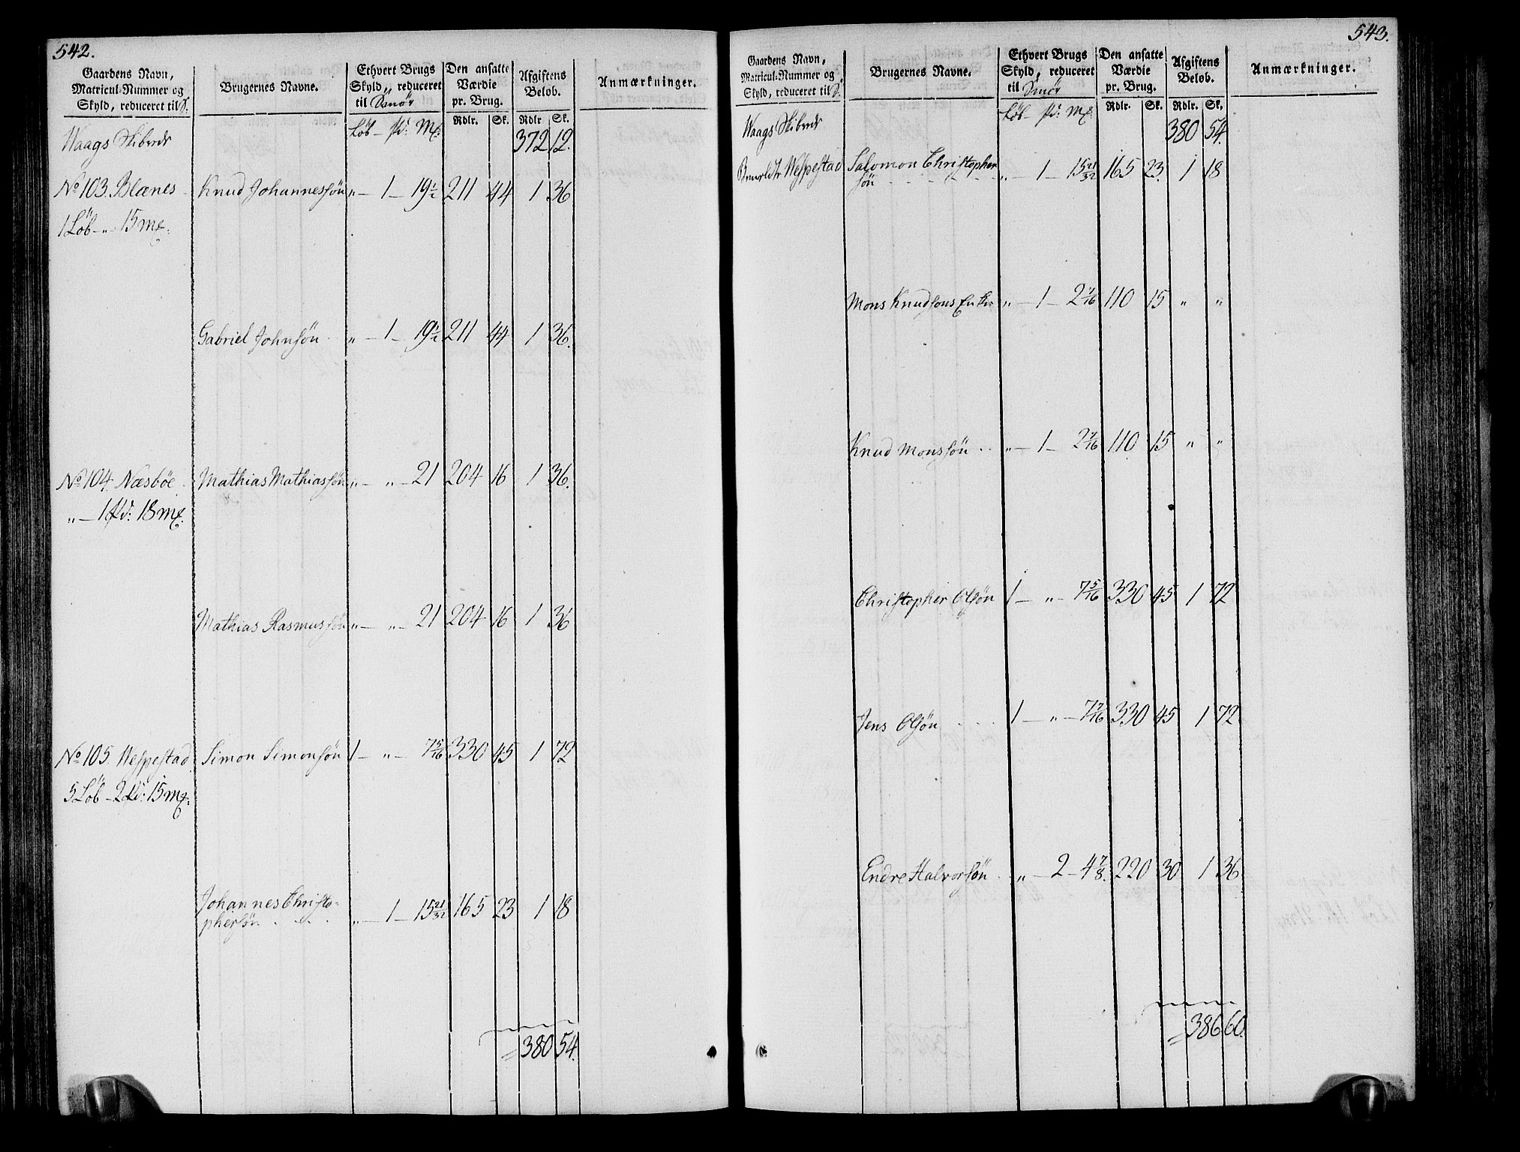 542.
Gaardens Navn, Matricul-Nummer og Skyld, reduceret til S. | Brugernes Navne. | Ethvert Brugs Skyld, reduceret til Smør | Den ansatte Værdie pr. Brug. | Afgiftens Beløb. | Anmærkninger.
Rdlr. Sk. Rdlr Sk.
Løb - pd: Mk
Waags Skibrede 372 12.
No 103. Blænes Knud Johannessøn „ - 1 - 19½ 211 44 1 36
1 Løb - „ - 15 mk.
Gabriel Johnsøn „ - 1 - 19½ 211 44 1 36.
No 104. Næsbøe Mathias Mathiassøn „ - „ - 21 204 16 1 36.
„ - 1 pd: 18 mk.
Mathias Rasmussøn „ - „ - 21 204 16 1 36
No 105. Wespestad Simon Simonsøn 1 - „ - 7 5/16 330 45 1 72
5 Løb - 2 pd: 15 mk.
Johannes Christo-
phersøn „ - 1 - 15 21/32 165 23 1 18
380 54.
543.
Gaardens Navn, Matricul-Nummer og Skyld, reduceret til S. | Brugernes Navne. | Ethvert Brugs Skyld, reduceret til Smør | Den ansatte Værdie pr. Brug. | Afgiftens Beløb. | Anmærkninger.
Rdlr. Sk. Rdlr. Sk.
Løb - pd: Mk
Waags Skibrede 380 54.
Wespestad Salomon Christopher
søn „ - 1 - 15 21/32 165 23. 1 18
Mons Knudsons Enke „ - 1 - 2 7/16 110 15 „ „
Knud Monssøn „ - 1 - 2 7/16 110 15 „ „
Christopher Olsøn 1 - „ - 7 5/16 330 45 1 72
Jens Olsøn 1 - „ - 7 7/16 330 45 1 72
Endre Halvorsøn „ - 2 - 4 7/8. 220 30 1 36
386 60.